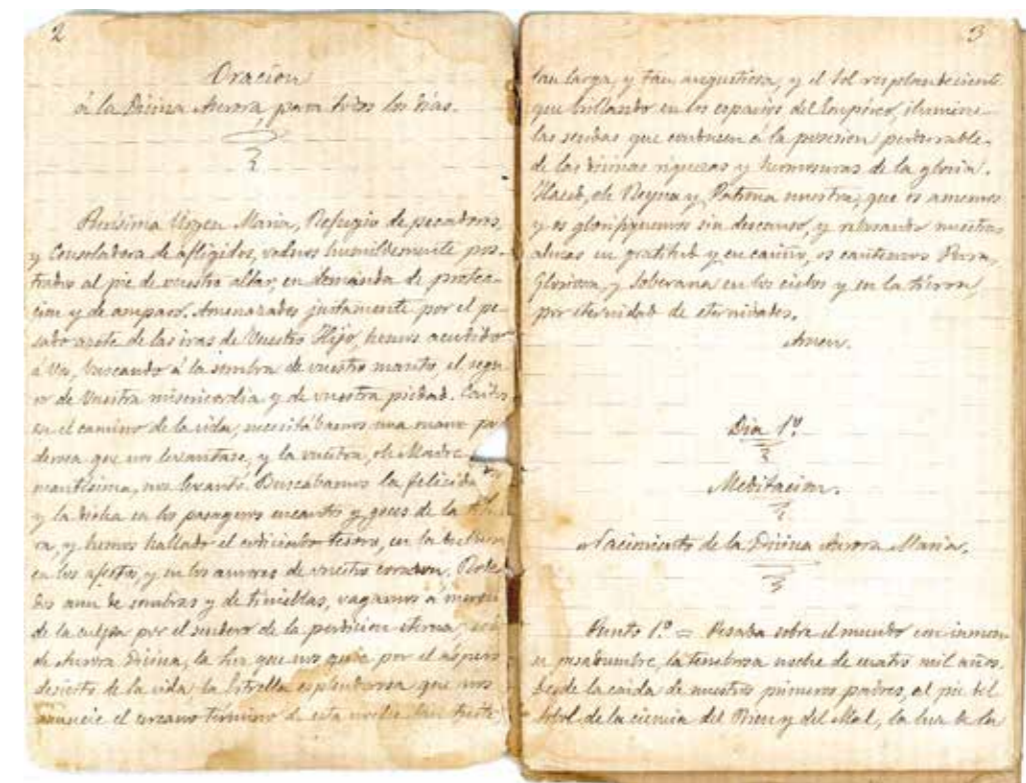 2
Oracion
á la Divina Aurora, para todos los dias.
Purísima Virgen Maria, Refugio de pecadores,
y Consoladora de afligidos, vednos humildemente pos-
trados al pie de vuestro altar, en demanda de protec-
cion y de amparo. Amenazados justamente por el pe-
sado azote de las iras de Vuestro Hijo, hemos acudido
á Vos, buscando á la sombra de vuestro manto, el segu-
ro de Vuestra misericordia y de vuestra piedad. Caidos
en el camino de la vida, necesitábamos una mano po-
derosa que nos levantase, y la vuestra, oh Madre
mantísima, nos levantó. Buscábamos la felicidad
y la dicha en los pasageros encantos y goces de la tier-
ra, y hemos hallado el codiciado tesoro, en la
en los afectos, y en los amores de vuestro corazon. Rodea-
dos aun de sombras y de tinieblas, vagamos á merced
de la culpa por el sendero de la perdicion eterna;
de Aurora Divina, la luz que nos guie por el áspero
desierto de la vida, la Estrella esplendorosa que nos
anuncie el cercano término de esta noche tan triste,
3
tan larga, y tan angustiosa, y el Sol resplandeciente
que brillando en los espacios del Empíreo, ilumine
las sendas que conducen á la posesion perdurable
de las divinas riquezas y hermosuras de la gloria.
Haced, oh Reyna y Patrona nuestra, que os amemos
y os glorifiquemos sin descanso, y rebosando nuestras
almas en gratitud y en cariño, os cantemos Pura,
Gloriosa, y Soberana en los cielos y en la tierra,
por eternidad de eternidades.
Amen.
Dia 1º
Meditacion.
Nacimiento de la Divina Aurora Maria.
Punto 1º = Pesaba sobre el mundo con inmen-
sa pesadumbre, la tenebrosa noche de cuatro mil años.
Desde la caida de nuestros primeros padres, al pie del
Arbol de la ciencia del Bien y del Mal, la luz de la